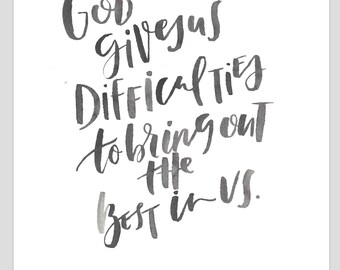 God
gives us
Difficulties
to bring out
the
Best in us.